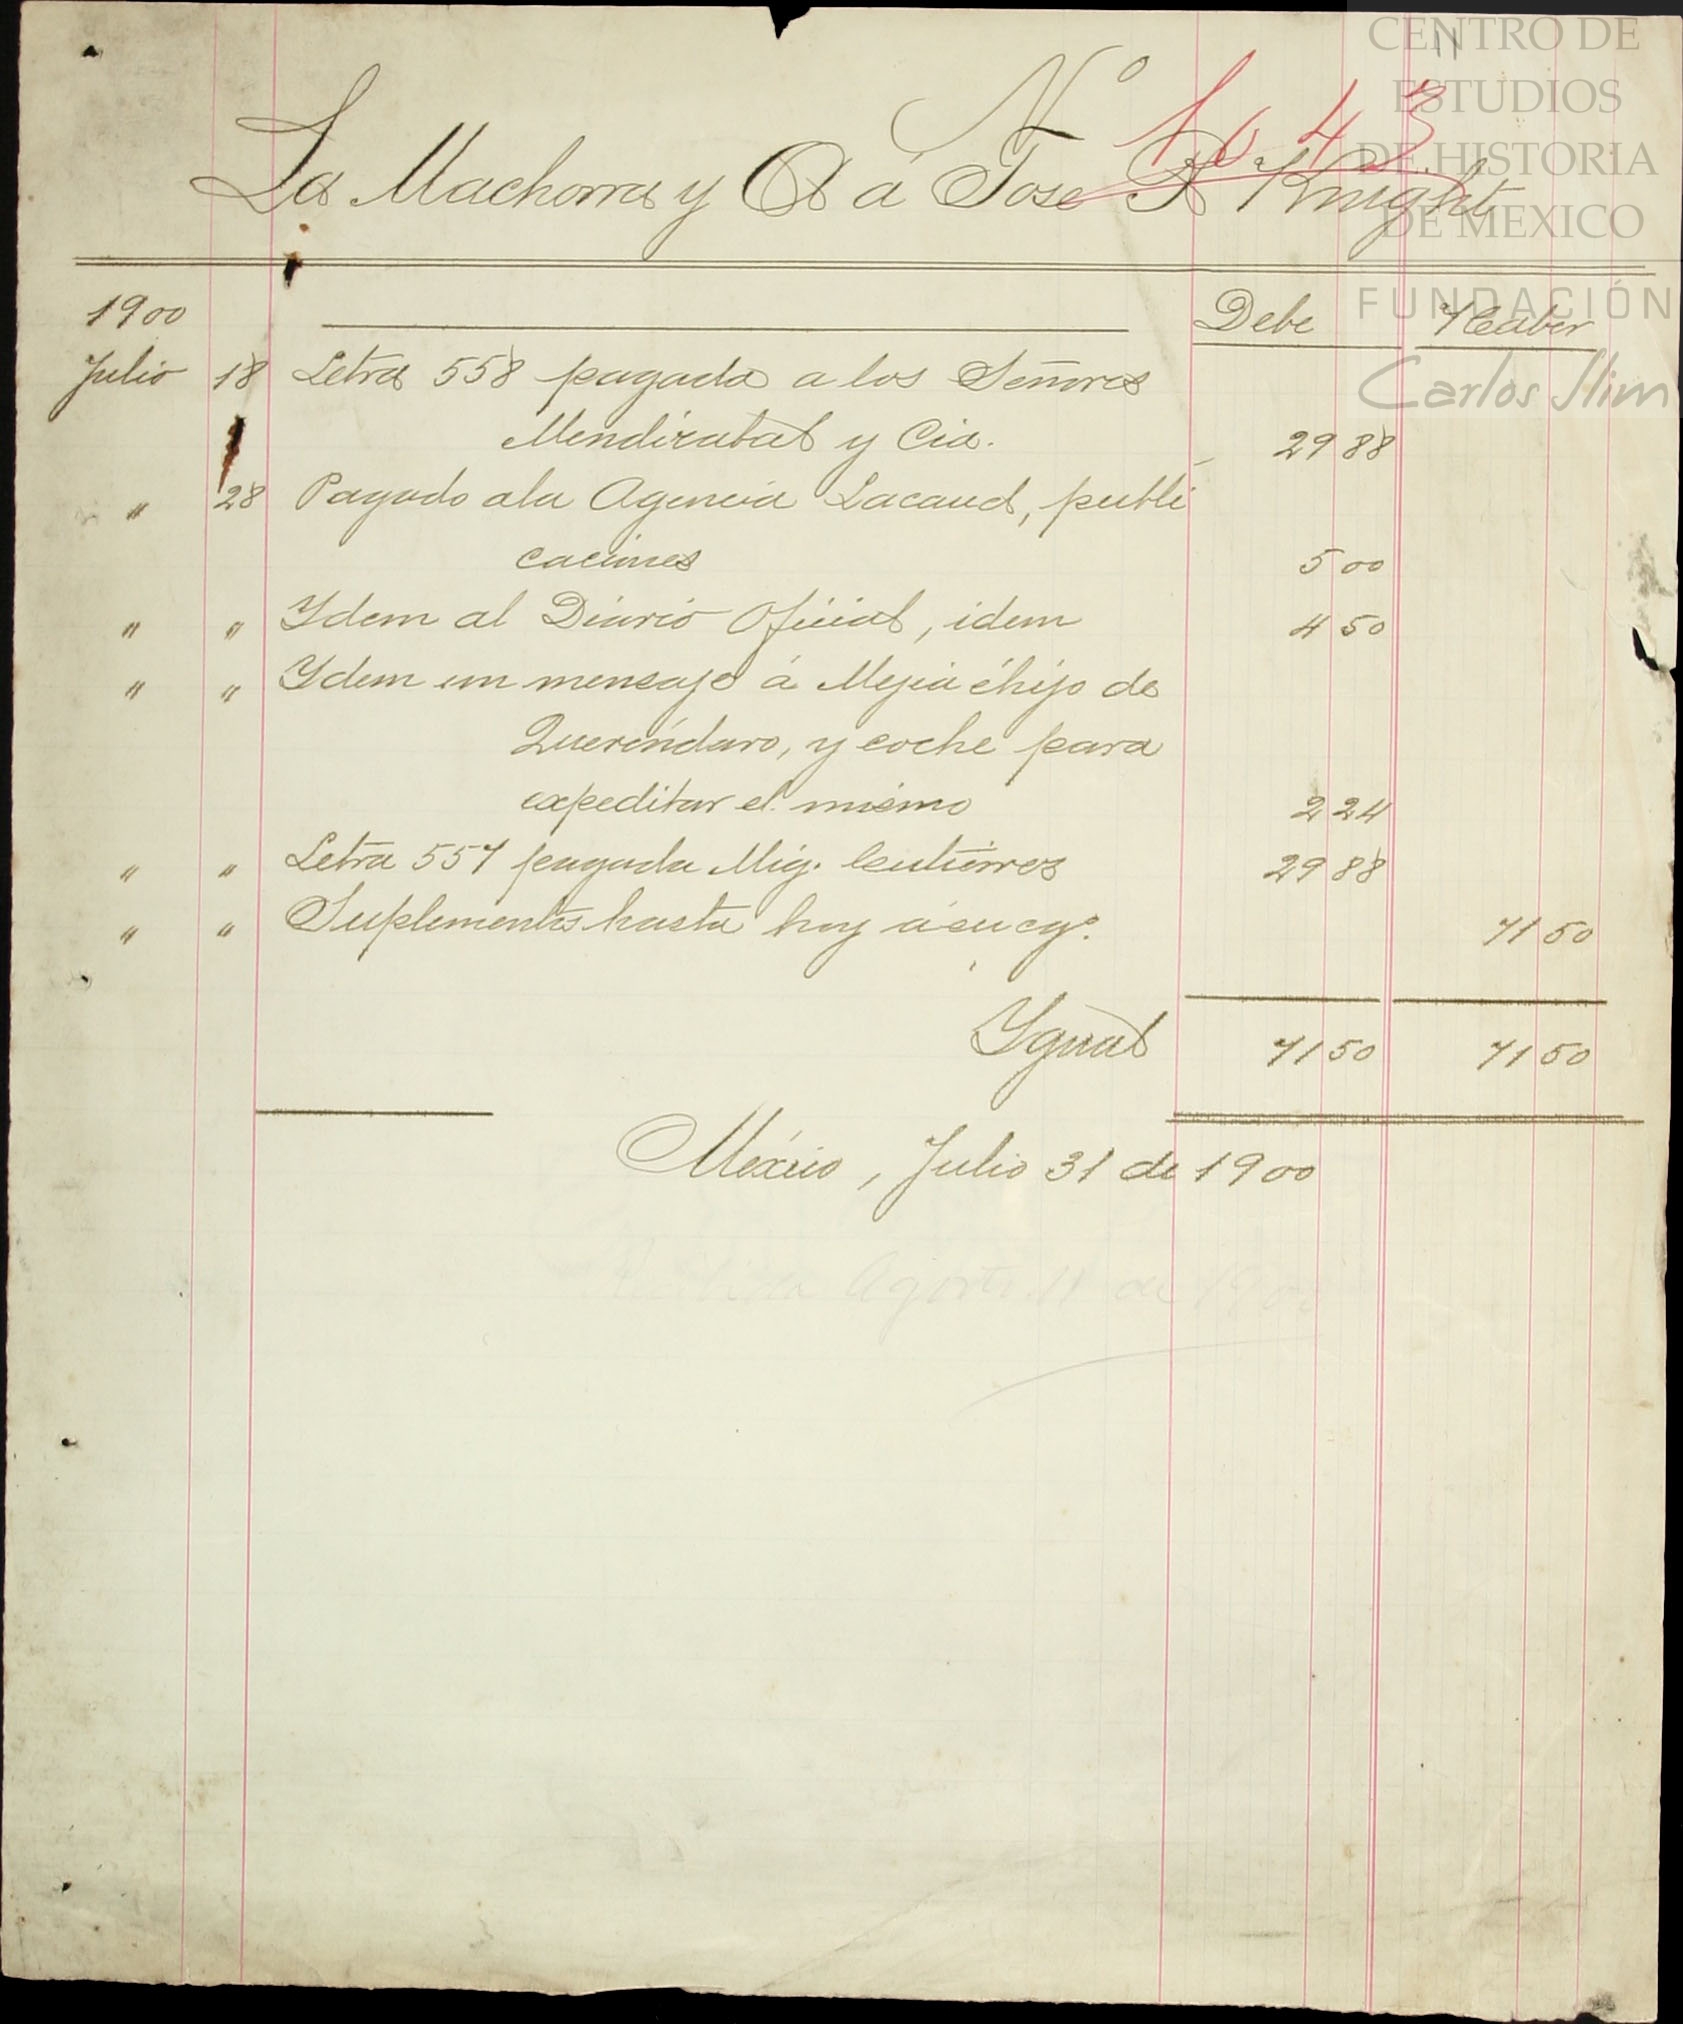 CENTRO DE
ESTUDIOS
DE HISTORIA
DE MEXICO
FUNDACIÓN
Carlos Slim
Nº 1043
La Machorra y Cª á Jose R Knight
1900 Debe Haber
Julio 18 Letra 558 pagada a los Señores
Mendizabal y Cia. 29 88
" 28 Pagado a la Agencia Lacaud, publi
caciones 5 00
" " Ydem al Diario Oficial, idem 4 50
" " Ydem un mensaje á Mejia é hijo de
Queréndaro, y coche para
expeditar el mismo 2 24
" " Letra 557 pagada Mig. Gutierrez 29 88
" " Suplementos hasta hoy á su cgº. 71 50
Ygual 71 50 71 50
México, Julio 31 de 1900
Agosto 11 de 1900